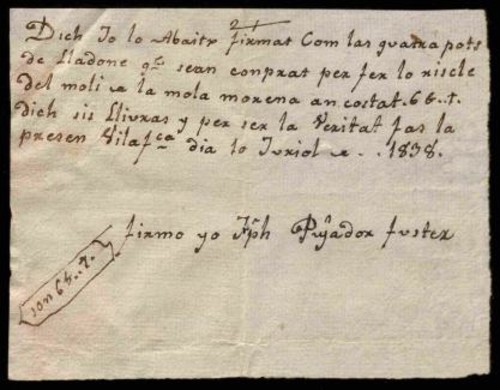 Dich Jo lo Abaitx firmat Com las quatra pots
de Lladone q.e sean conprat per fer lo riscle
del moli de la mola morena an costat. 6 ₶.
dich sis Llivras y per ser la Veritat fas la
presen Vilaf.ca dia 10 Juriol de . . 1838.
firmo yo Jph Pujador fuster
son 6 ₶.